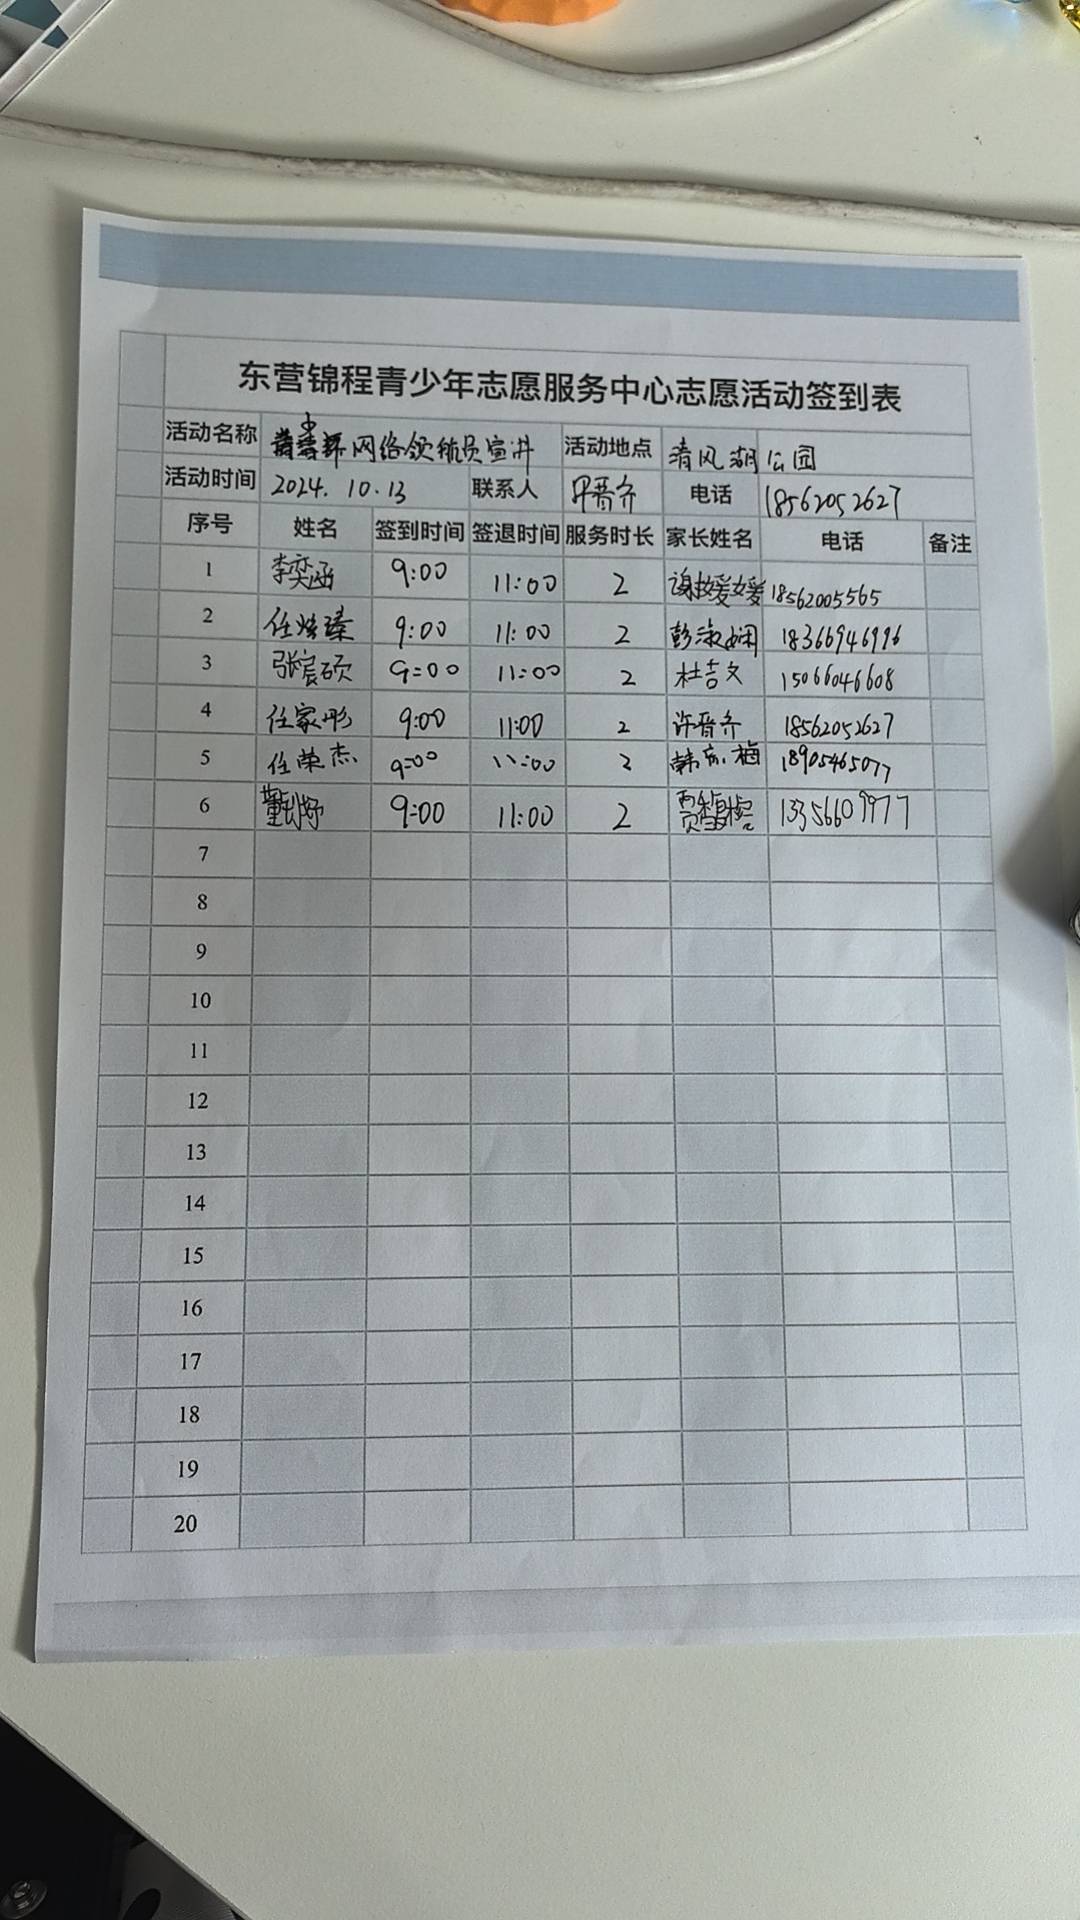 东营锦程青少年志愿服务中心志愿活动签到表
活动名称 网络领航员宣讲 活动地点 清风湖公园
活动时间 2024.10.13 联系人 晋齐 电话 18562052627
序号 姓名 签到时间 签退时间 服务时长 家长姓名 电话 备注
1 李奕涵 9:00 11:00 2 谢媛媛 18562005565
2 任 9:00 11:00 2 彭淑娴 18366946996
3 张宸硕 9:00 11:00 2 杜吉文 15066046608
4 任家彤 9:00 11:00 2 许晋齐 18562052627
5 任荣杰 9:00 11:00 2 韩 梅 18905465077
6 董 9:00 11:00 2 贾 13356609977
7
8
9
10
11
12
13
14
15
16
17
18
19
20